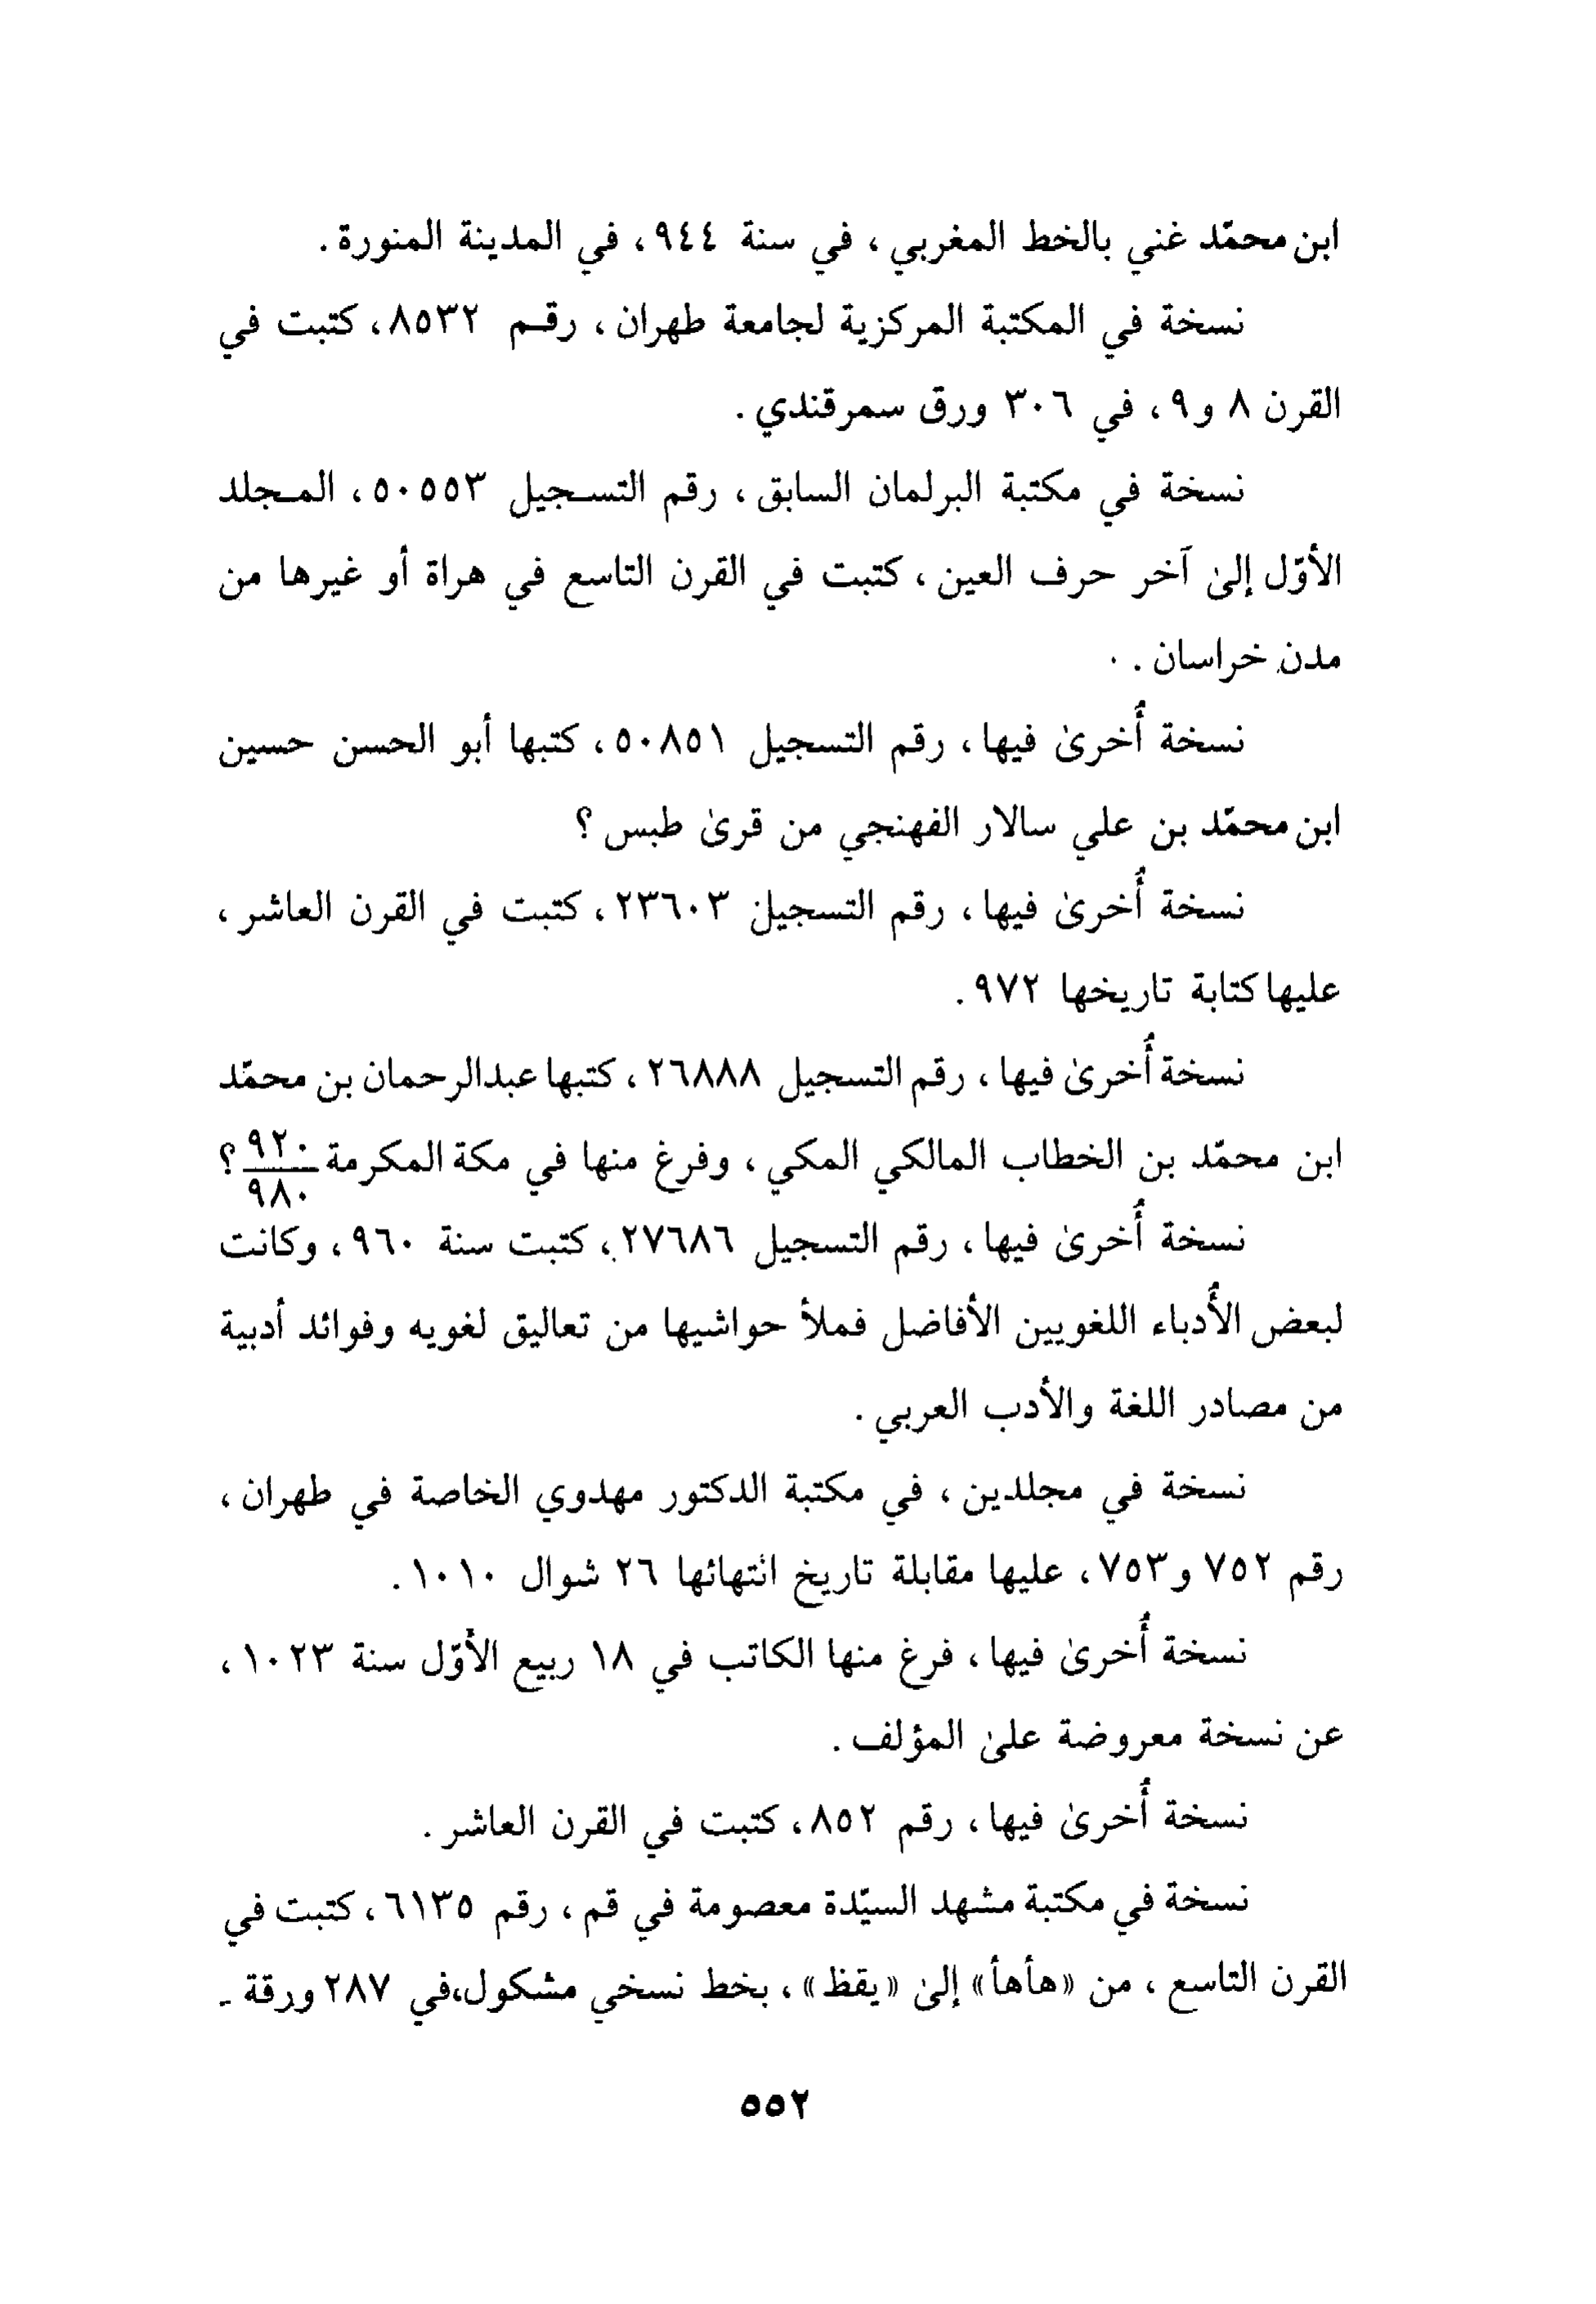 ابن محمّد غني بالخط المغربي ، في سنة ٩٤٤ ، في المدينة المنورة .
نسخة في المكتبة المركزية لجامعة طهران ، رقم ٨٥٣٢ ، كتبت في
القرن ٨ و٩ ، في ٣٠٦ ورق سمرقندي .
نسخة في مكتبة البرلمان السابق ، رقم التسجيل ٥٠٥٥٣ ، المجلد
الأوّل إلىٰ آخر حرف العين ، كتبت في القرن التاسع في هراة أو غيرها من
مدن خراسان .
نسخة أُخرىٰ فيها ، رقم التسجيل ٥٠٨٥١ ، كتبها أبو الحسن حسين
ابن محمّد بن علي سالار الفهنجي من قرىٰ طبس ؟
نسخة أُخرىٰ فيها ، رقم التسجيل ٢٣٦٠٣ ، كتبت في القرن العاشر ،
عليها كتابة تاريخها ٩٧٢ .
نسخة أُخرىٰ فيها ، رقم التسجيل ٢٦٨٨٨ ، كتبها عبدالرحمان بن محمّد
ابن محمّد بن الخطاب المالكي المكي ، وفرغ منها في مكة المكرمة ٩٢٠/٩٨٠ ؟
نسخة أُخرىٰ فيها ، رقم التسجيل ٢٧٦٨٦ ، كتبت سنة ٩٦٠ ، وكانت
لبعض الأُدباء اللغويين الأفاضل فملأ حواشيها من تعاليق لغويه وفوائد أدبية
من مصادر اللغة والأدب العربي .
نسخة في مجلدين ، في مكتبة الدكتور مهدوي الخاصة في طهران ،
رقم ٧٥٢ و٧٥٣ ، عليها مقابلة تاريخ انتهائها ٢٦ شوال ١٠١٠ .
نسخة أُخرىٰ فيها ، فرغ منها الكاتب في ١٨ ربيع الأوّل سنة ١٠٢٣ ،
عن نسخة معروضة علىٰ المؤلف .
نسخة أُخرىٰ فيها ، رقم ٨٥٢ ، كتبت في القرن العاشر .
نسخة في مكتبة مشهد السيّدة معصومة في قم ، رقم ٦١٣٥ ، كتبت في
القرن التاسع ، من «هأهأ» إلىٰ «يقظ» ، بخط نسخي مشكول،في ٢٨٧ ورقة ـ
٥٥٢